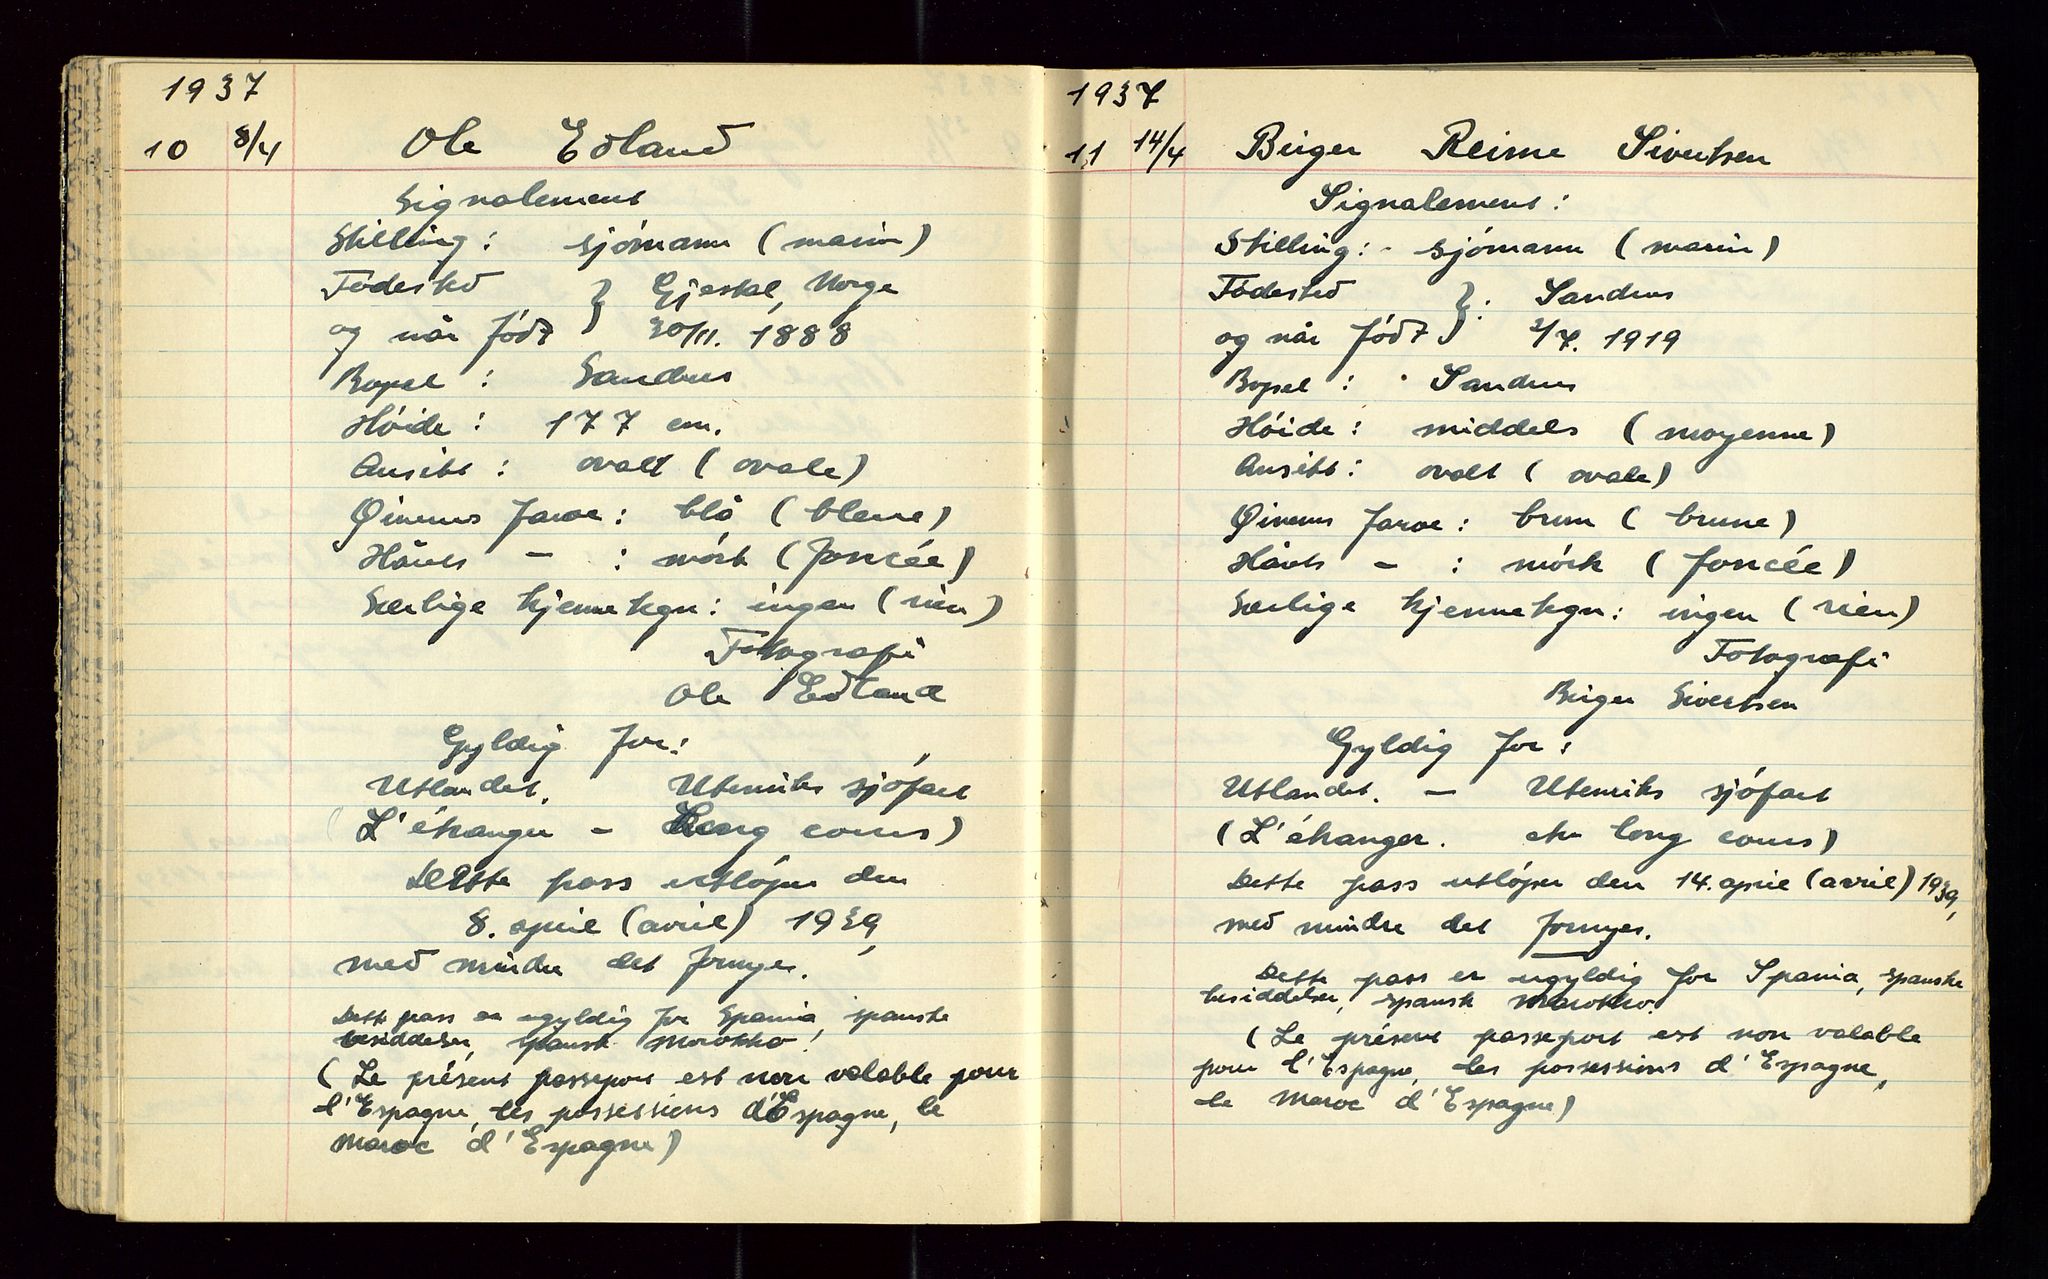 1937
10 8/4 Ole Edland
Signalement
Stilling: sjómann (marin)
Fødested } Gjestal, Norge
og når fódt } 30/11. 1888
Bopel: Sandnes
Hóide: 177 cm.
Ansikt: ovalt (ovale)
Øinenes farve: blå (bleue)
Hårets — : mórk (foncée)
Særlige kjennetegn: ingen (rien)
Fotografi
Ole Edland
Gyldig for:
Utlandet. Utenriks sjófart
(L'étranger – long cours)
Dette pass utlóper den
8. april (avril) 1939,
med mindre det fornyes.
Dette pass er ugyldig for Spania, spanske
besiddelser, spansk Marokko.
(Le présent passeport est non valable pour
l'Espagne, les possessions d'Espagne, le
Maroc d'Espagne)
1937
11 14/4 Birger Reime Sivertsen
Signalement:
Stilling: - sjómann (marin)
Fødested } : Sandnes
og når fódt } 2/7. 1919
Bopel: Sandnes
Hóide: middels (moyenne)
Ansikt: ovalt (ovale)
Øinenes farve: brun (brune)
Hårets – : mórk (foncée)
Særlige kjennetegn: ingen (rien)
Fotografi
Birger Sivertsen
Gyldig for:
Utlandet. — Utenriks sjófart
(L'étranger. long cours)
Dette pass utlóper den 14. april (avril) 1939,
med mindre det fornyes.
Dette pass er ugyldig for Spania, spanske
besiddelser, spansk Marokko.
(Le présent passeport est non valable
pour l'Espagne, les possessions d'Espagne,
le Maroc d'Espagne)